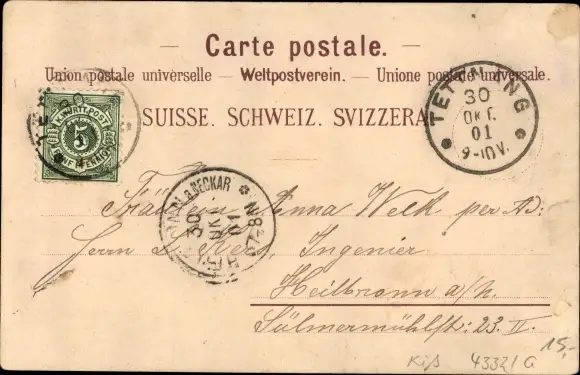 Carte postale.
Union postale universelle – Weltpostverein. – Unione postale universale.
SUISSE. SCHWEIZ. SVIZZERA
K. WÜRTT. POST
5
TETTNANG
30
OKT.
01
9-10V.
a. NECKAR
30
OKT
01
7-8N
Fräulein Anna Welk per Ad:
Herrn Ingenier
Heilbronn a/N.
Sülmermühlstr: 23. II.
15,-
43321 G